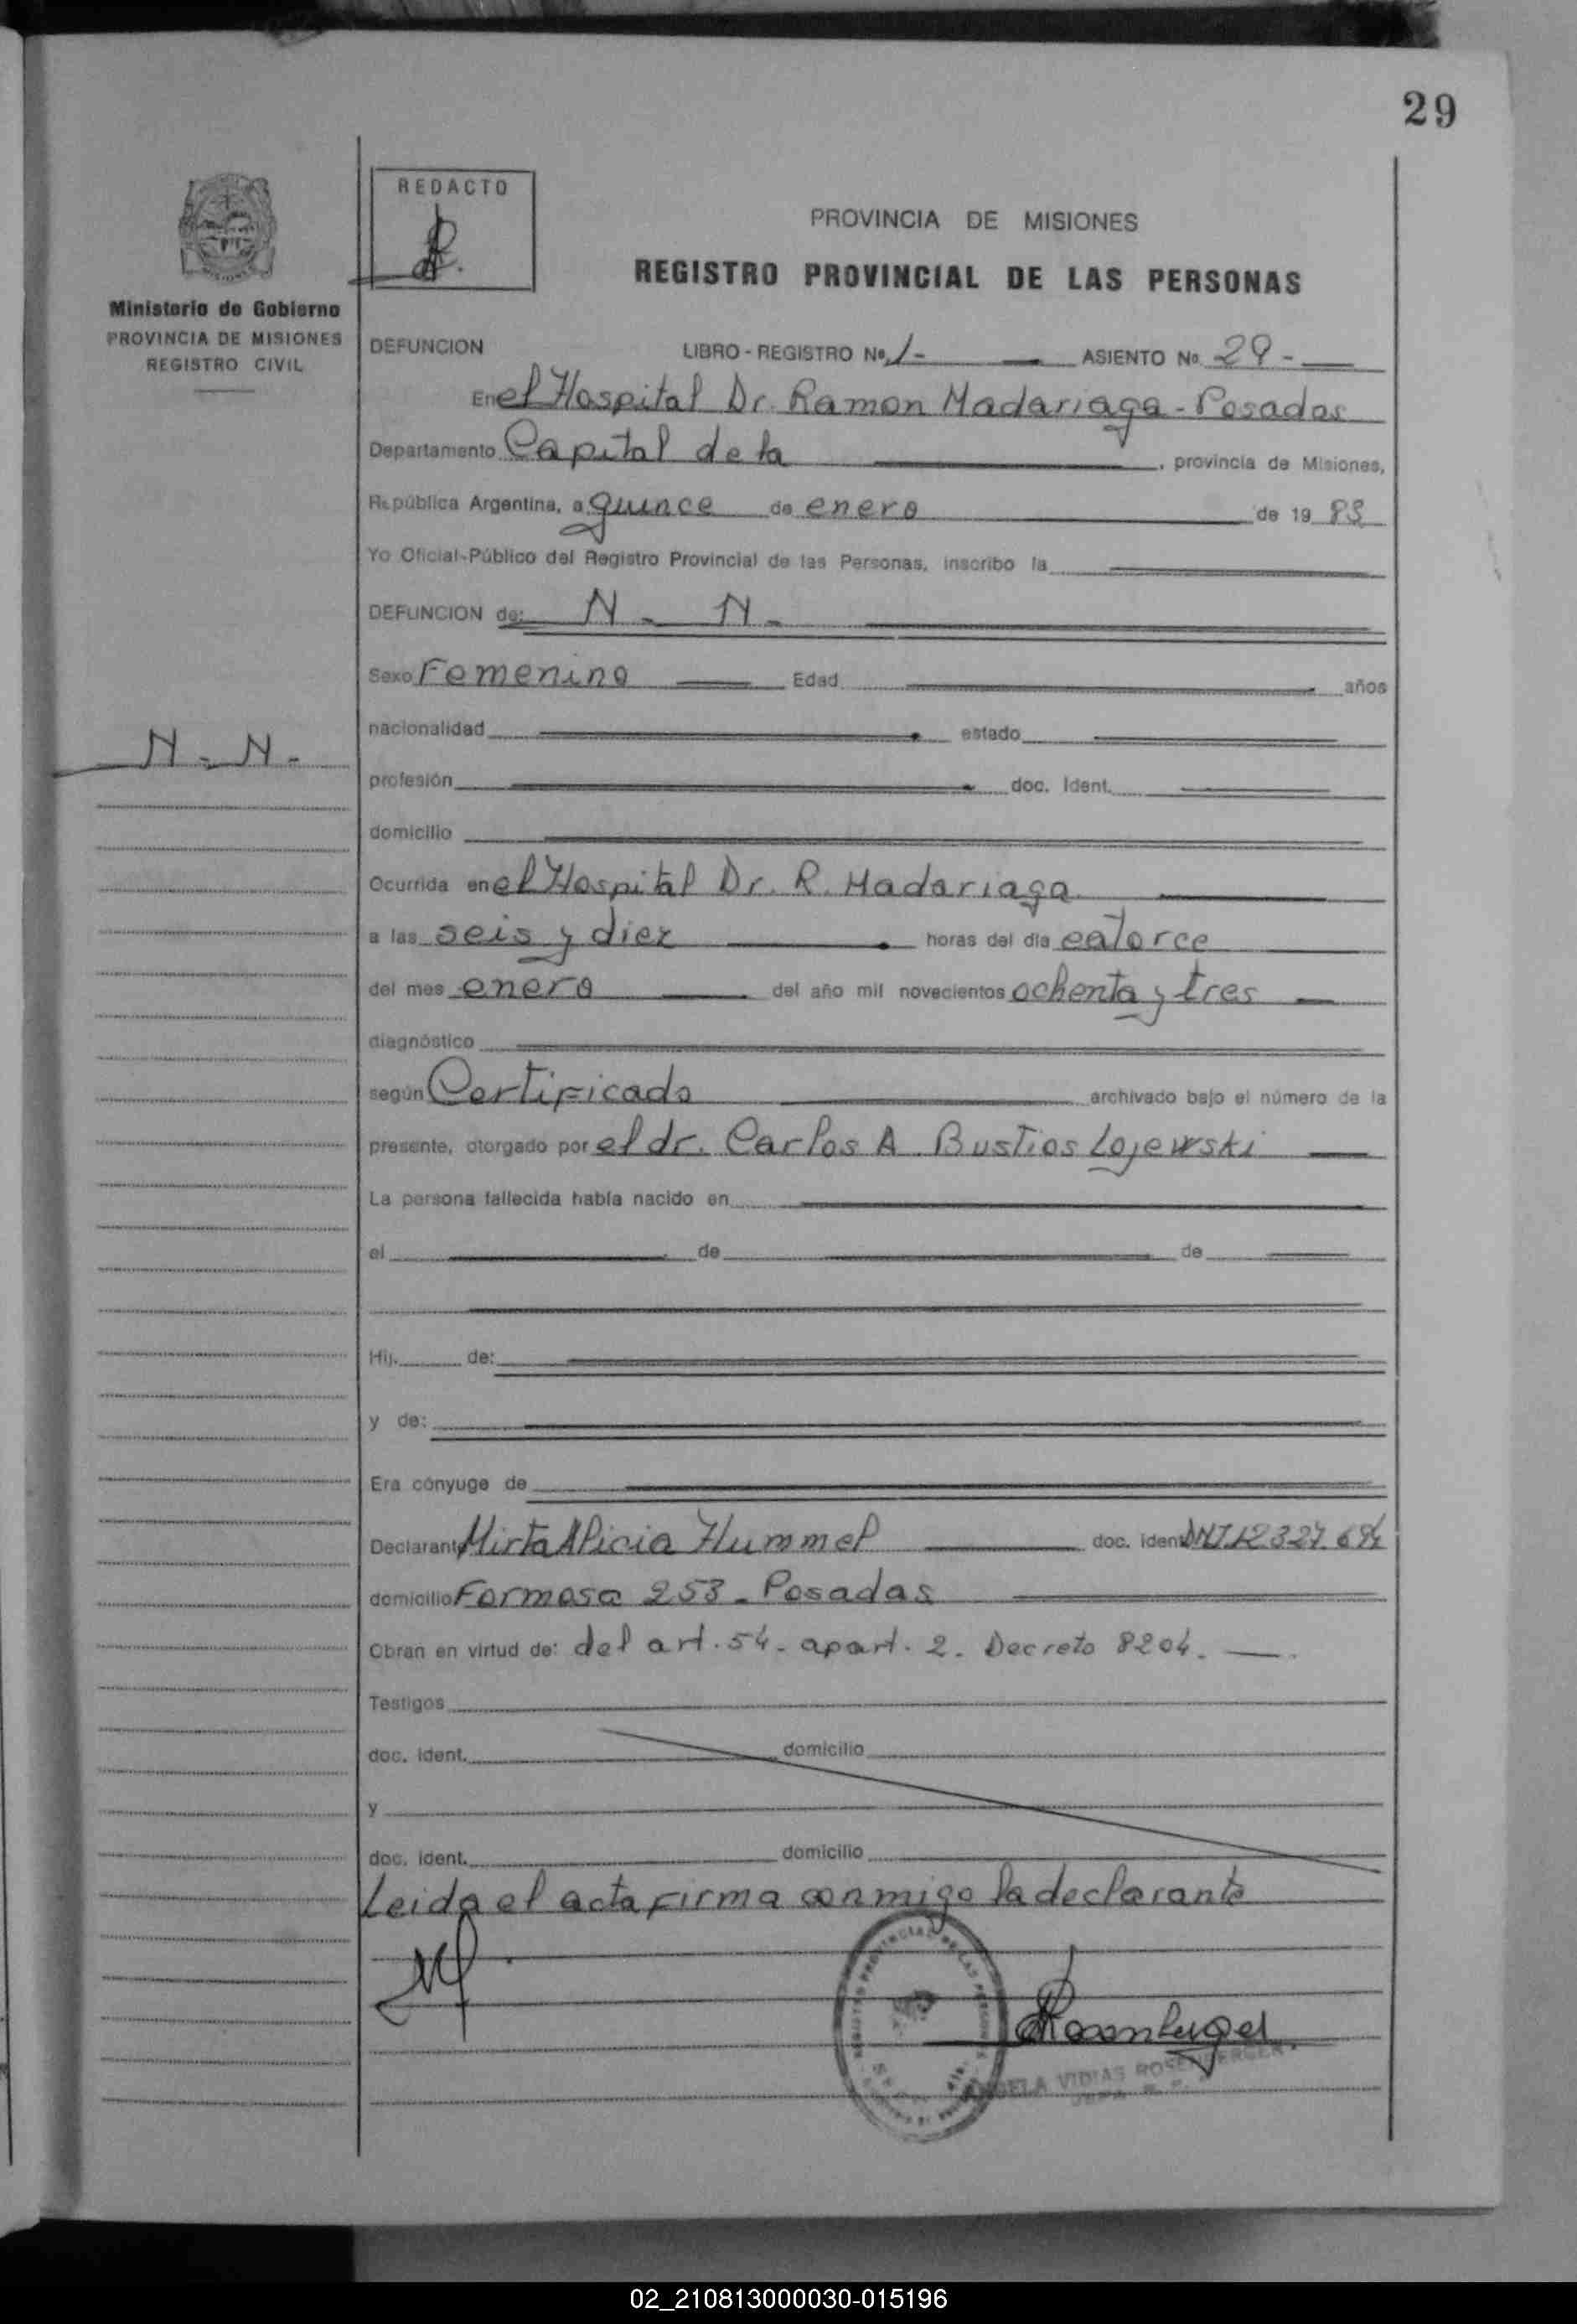 29
REDACTO
PROVINCIA DE MISIONES
REGISTRO PROVINCIAL DE LAS PERSONAS
Ministerio de Gobierno
PROVINCIA DE MISIONES
REGISTRO CIVIL
DEFUNCION LIBRO - REGISTRO Nº 1- ASIENTO Nº 29 -
En el Hospital Dr. Ramon Madariaga - Posadas
Departamento Capital de la , provincia de Misiones,
República Argentina, a quince de enero de 19 83
Yo Oficial-Público del Registro Provincial de las Personas, inscribo la
DEFUNCION de: N - N -
Sexo Femenino Edad años
nacionalidad estado
N - N -
profesión doc. Ident.
domicilio
Ocurrida en el Hospital Dr. R. Madariaga
a las seis y diez horas del día catorce
del mes enero del año mil novecientos ochenta y tres
diagnóstico
según Certificado archivado bajo el número de la
presente, otorgado por el dr. Carlos A. Bustios Lojewski
La persona fallecida había nacido en
el de de
Hij. de:
y de:
Era cónyuge de
Declarante Mirta Alicia Hummel doc. ident. DNI 12.327.694
domicilio Formosa 253 - Posadas
Obran en virtud de: del art. 54 - apart. 2. Decreto 8204.
Testigos
doc. ident. domicilio
y
doc. ident. domicilio
Leida el acta firma conmigo la declarante
VIDIAS ROSENBERGER
02_210813000030-015196